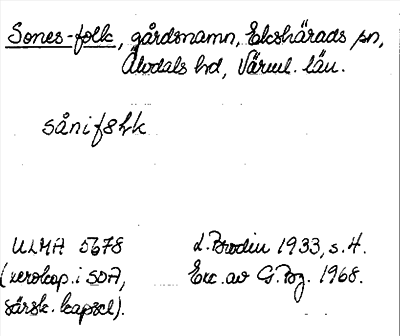 Sones-folk, gårdsnamn, Ekshärads sn,
Älvdals hd, Värml. län.
sånifållk
ULMA 5678
(xerokop. i SOA,
särsk. kapsel).
L. Brodin 1933, s. 4.
Exc. av G. Bg. 1968.